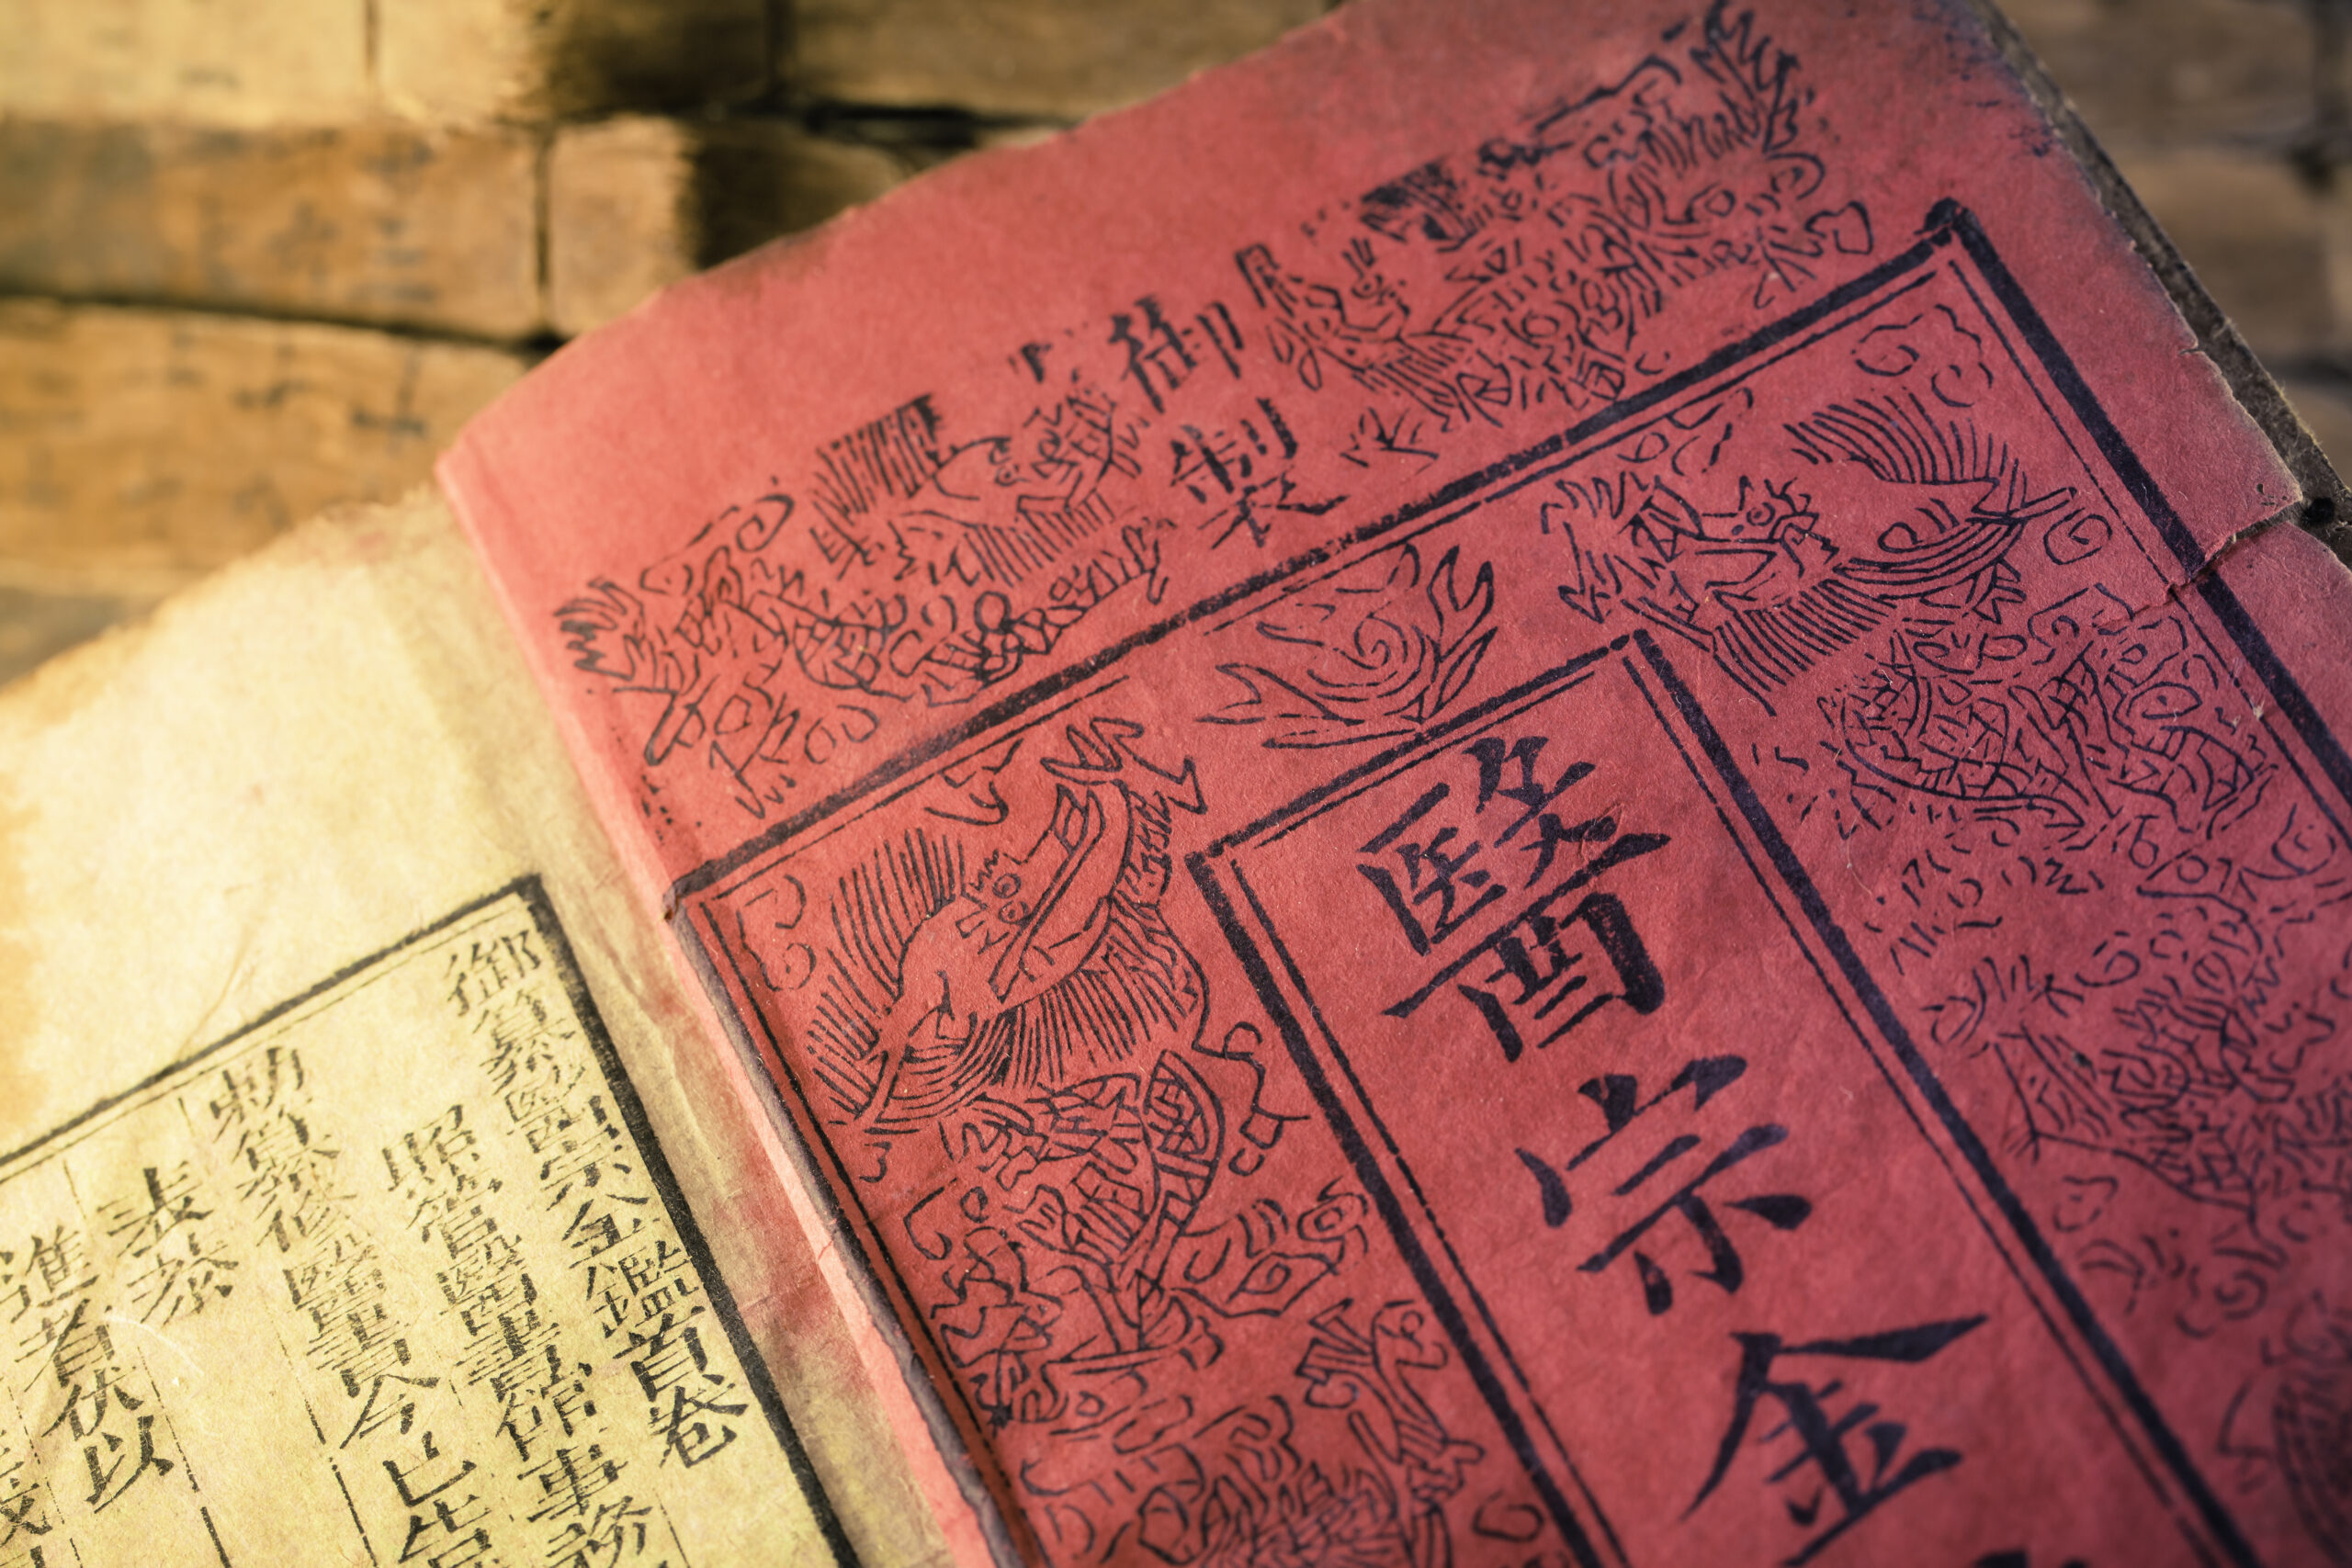 御製
醫宗金
御纂醫宗金鑑首卷
照管醫書館事務
勅纂修醫書今已告
表恭
進者伏以